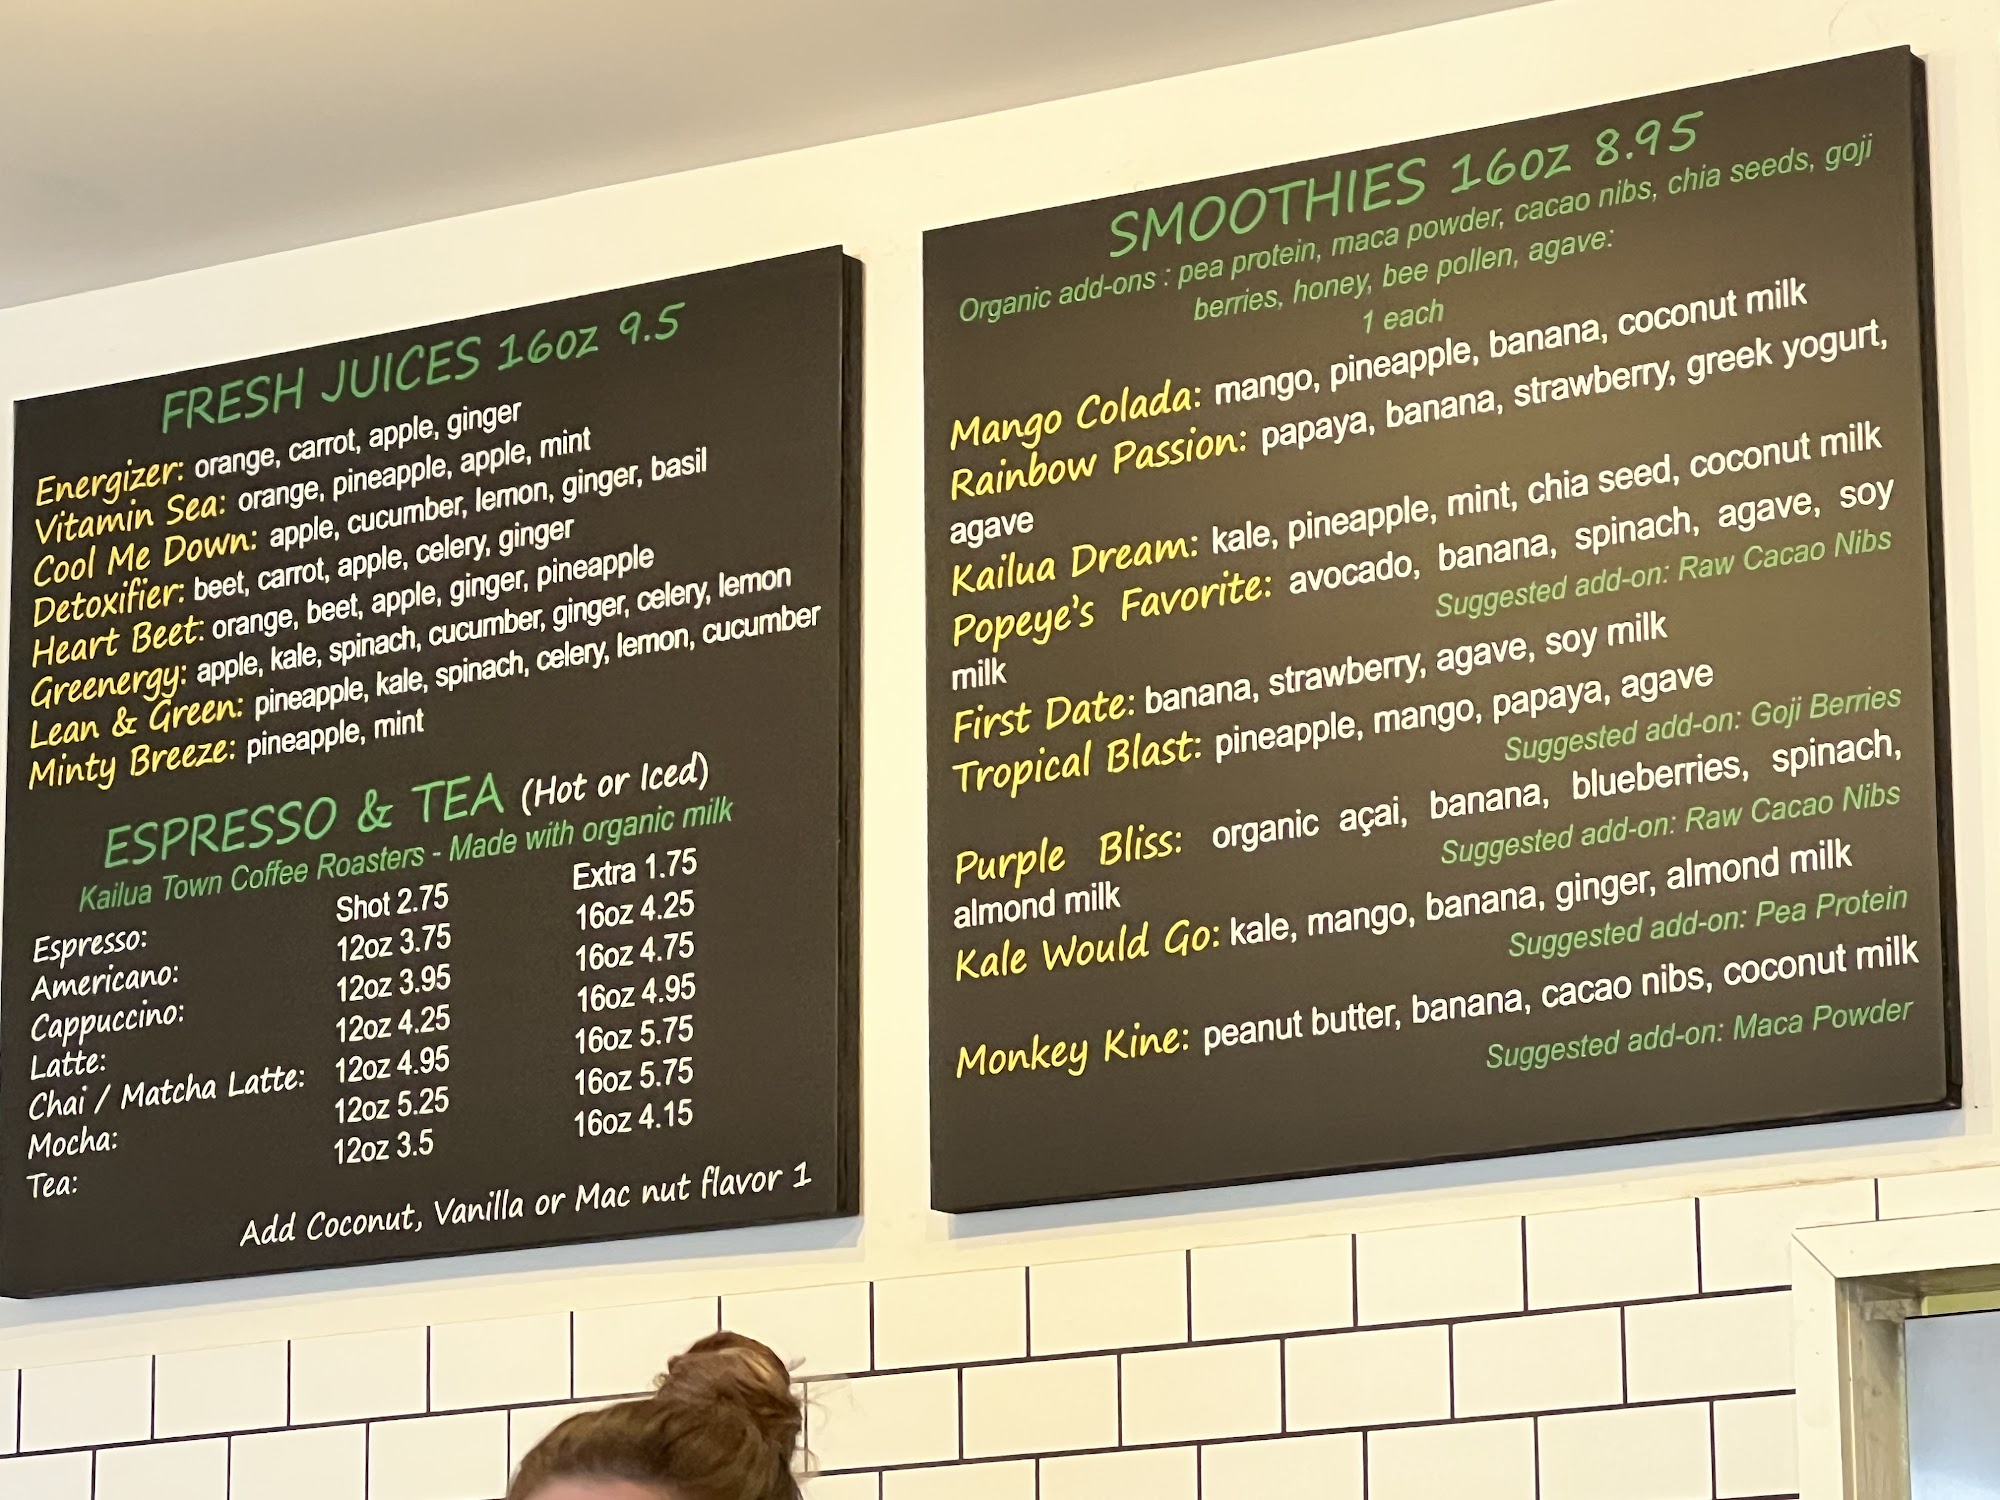 FRESH JUICES 16oz 9.5
Energizer: orange, carrot, apple, ginger
Vitamin Sea: orange, pineapple, apple, mint
Cool Me Down: apple, cucumber, lemon, ginger, basil
Detoxifier: beet, carrot, apple, celery, ginger
Heart Beet: orange, beet, apple, ginger, pineapple
Greenergy: apple, kale, spinach, cucumber, ginger, celery, lemon
Lean & Green: pineapple, kale, spinach, celery, lemon, cucumber
Minty Breeze: pineapple, mint
ESPRESSO & TEA (Hot or Iced)
Kailua Town Coffee Roasters - Made with organic milk
Espresso: Shot 2.75 Extra 1.75
Americano: 12oz 3.75 16oz 4.25
Cappuccino: 12oz 3.95 16oz 4.75
Latte: 12oz 4.25 16oz 4.95
Chai / Matcha Latte: 12oz 4.95 16oz 5.75
Mocha: 12oz 5.25 16oz 5.75
Tea: 12oz 3.5 16oz 4.15
Add Coconut, Vanilla or Mac nut flavor 1
SMOOTHIES 16oz 8.95
Organic add-ons : pea protein, maca powder, cacao nibs, chia seeds, goji
berries, honey, bee pollen, agave:
1 each
Mango Colada: mango, pineapple, banana, coconut milk
Rainbow Passion: papaya, banana, strawberry, greek yogurt,
agave
Kailua Dream: kale, pineapple, mint, chia seed, coconut milk
Popeye's Favorite: avocado, banana, spinach, agave, soy
milk
Suggested add-on: Raw Cacao Nibs
First Date: banana, strawberry, agave, soy milk
Tropical Blast: pineapple, mango, papaya, agave
Suggested add-on: Goji Berries
Purple Bliss: organic açai, banana, blueberries, spinach,
almond milk
Suggested add-on: Raw Cacao Nibs
Kale Would Go: kale, mango, banana, ginger, almond milk
Suggested add-on: Pea Protein
Monkey Kine: peanut butter, banana, cacao nibs, coconut milk
Suggested add-on: Maca Powder